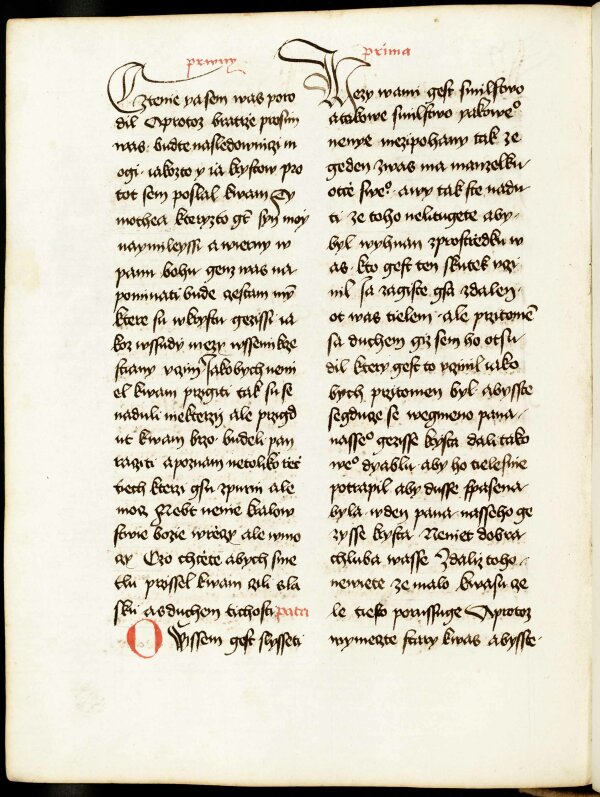 prwny
Cztenie ya sem was poro
dil Aprotoz bratrzie prosim
was · budte nasledowniczi m
ogi · iakozto y ia krystow pro
tot sem poslal kwam Ty
mothea kteryzto gt syn moy
naymileyssi a wierny w
panu bohu genz was na
pominati bude cestam my
ktere su wkrystu gezissi · ia
koz wssudy mezy wssemi krze
stiany vczim Jakobych neni
el kwam przigiti tak su se
naduli niekterzij ale przigd
ut kwam brzo budeli pan
racziti a poznam netoliko rec
tiech kterzi gsu zpurni ale
moc Nebt nenie kralow
stwie bozie wrieczy ale wmo
cy Czo chcete abych sme
tlu prossel kwam czili s la
sku · as duchem tichosti pata
OWssem gest slysseti
prima
Mezy wami gest smilstwo
a takowe smilstwo yakoweo
nenye mezipohany tak ze
geden zwas ma manzelku
otcie sweo · a wy tak ste nadu
ti · ze toho nelitugete aby
byl wyhnan zprostredku w
as · kto gest ten skutek vczi
nil · Ja zagiste gsa zdalen
ot was tielem · ale przitomen
sa duchem giz sem ho otsu
dil ktery gest to vczinil iako
bych przitomen byl · abysste
segduce se wegmeno pana
nasseo gezisse krysta dali tako
weo dyablu · aby ho tielesnie
potrapil aby dusse spasena
byla · w den pana nasseho ge
zysse krysta · Neniet dobra
chluba wasse Zdaliz toho
newiete ze malo kwasu ce
le tiesto porussuge Aprotoz
wymecte stary kwas abysste